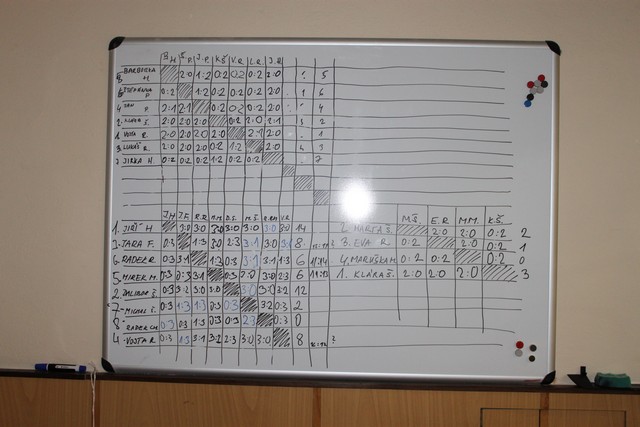 B.H Š.P J.P K.Š V.R L.R J.H
BARBORKA H. 2:0 1:2 0:2 0:2 0:2 2:0 5
ŠTĚPÁNKA P. 0:2 1:2 0:2 0:2 0:2 2:0 6
4 JAN P. 2:1 2:1 0:2 0:2 0:2 2:0 4
2. KLÁRA Š. 2:0 2:0 2:0 0:2 2:0 2:1 2
1. VOJTA R. 2:0 2:0 2:0 2:0 2:1 2:0 1
3. LUKÁŠ R. 2:0 2:0 2:0 0:2 1:2 2:0 3
JIRKA H. 0:2 0:2 0:2 1:2 0:2 0:2 7
J.H J.F. R.R M.M D.Š. M.Š. R.CH V.R
1. JIŘÍ H 3:0 3:0 3:0 3:0 3:0 3:0 3:0 14
JARA F. 0:3 1:3 3:0 2:3 3:1 3:0 8
6. RADEK R. 0:3 3:1 1:3 0:3 3:1 3:1 1:3 6
5. MIREK M. 0:3 0:3 3:1 0:3 3:0 2:3 6
2. DALIBOR Š. 0:3 3:2 3:0 3:0 3:0 3:0 3:2 12
7. MICHAL Š. 0:3 1:3 1:3 0:3 3:2 0:3 2
8. RADEK CH 0:3 0:3 1:3 0:3 0:3 2:3 0:3 0
4. VOJTA R. 0:3 1:3 3:1 3:2 2:3 3:0 3:0 8
M.Š. E.R M.M. K.Š.
2. MARTA Š. 2:0 2:0 0:2 2
3. EVA R. 0:2 2:0 0:2 1
4. MARUŠKA M. 0:2 0:2 0:2 0
1. KLÁRA Š. 2:0 2:0 2:0 3